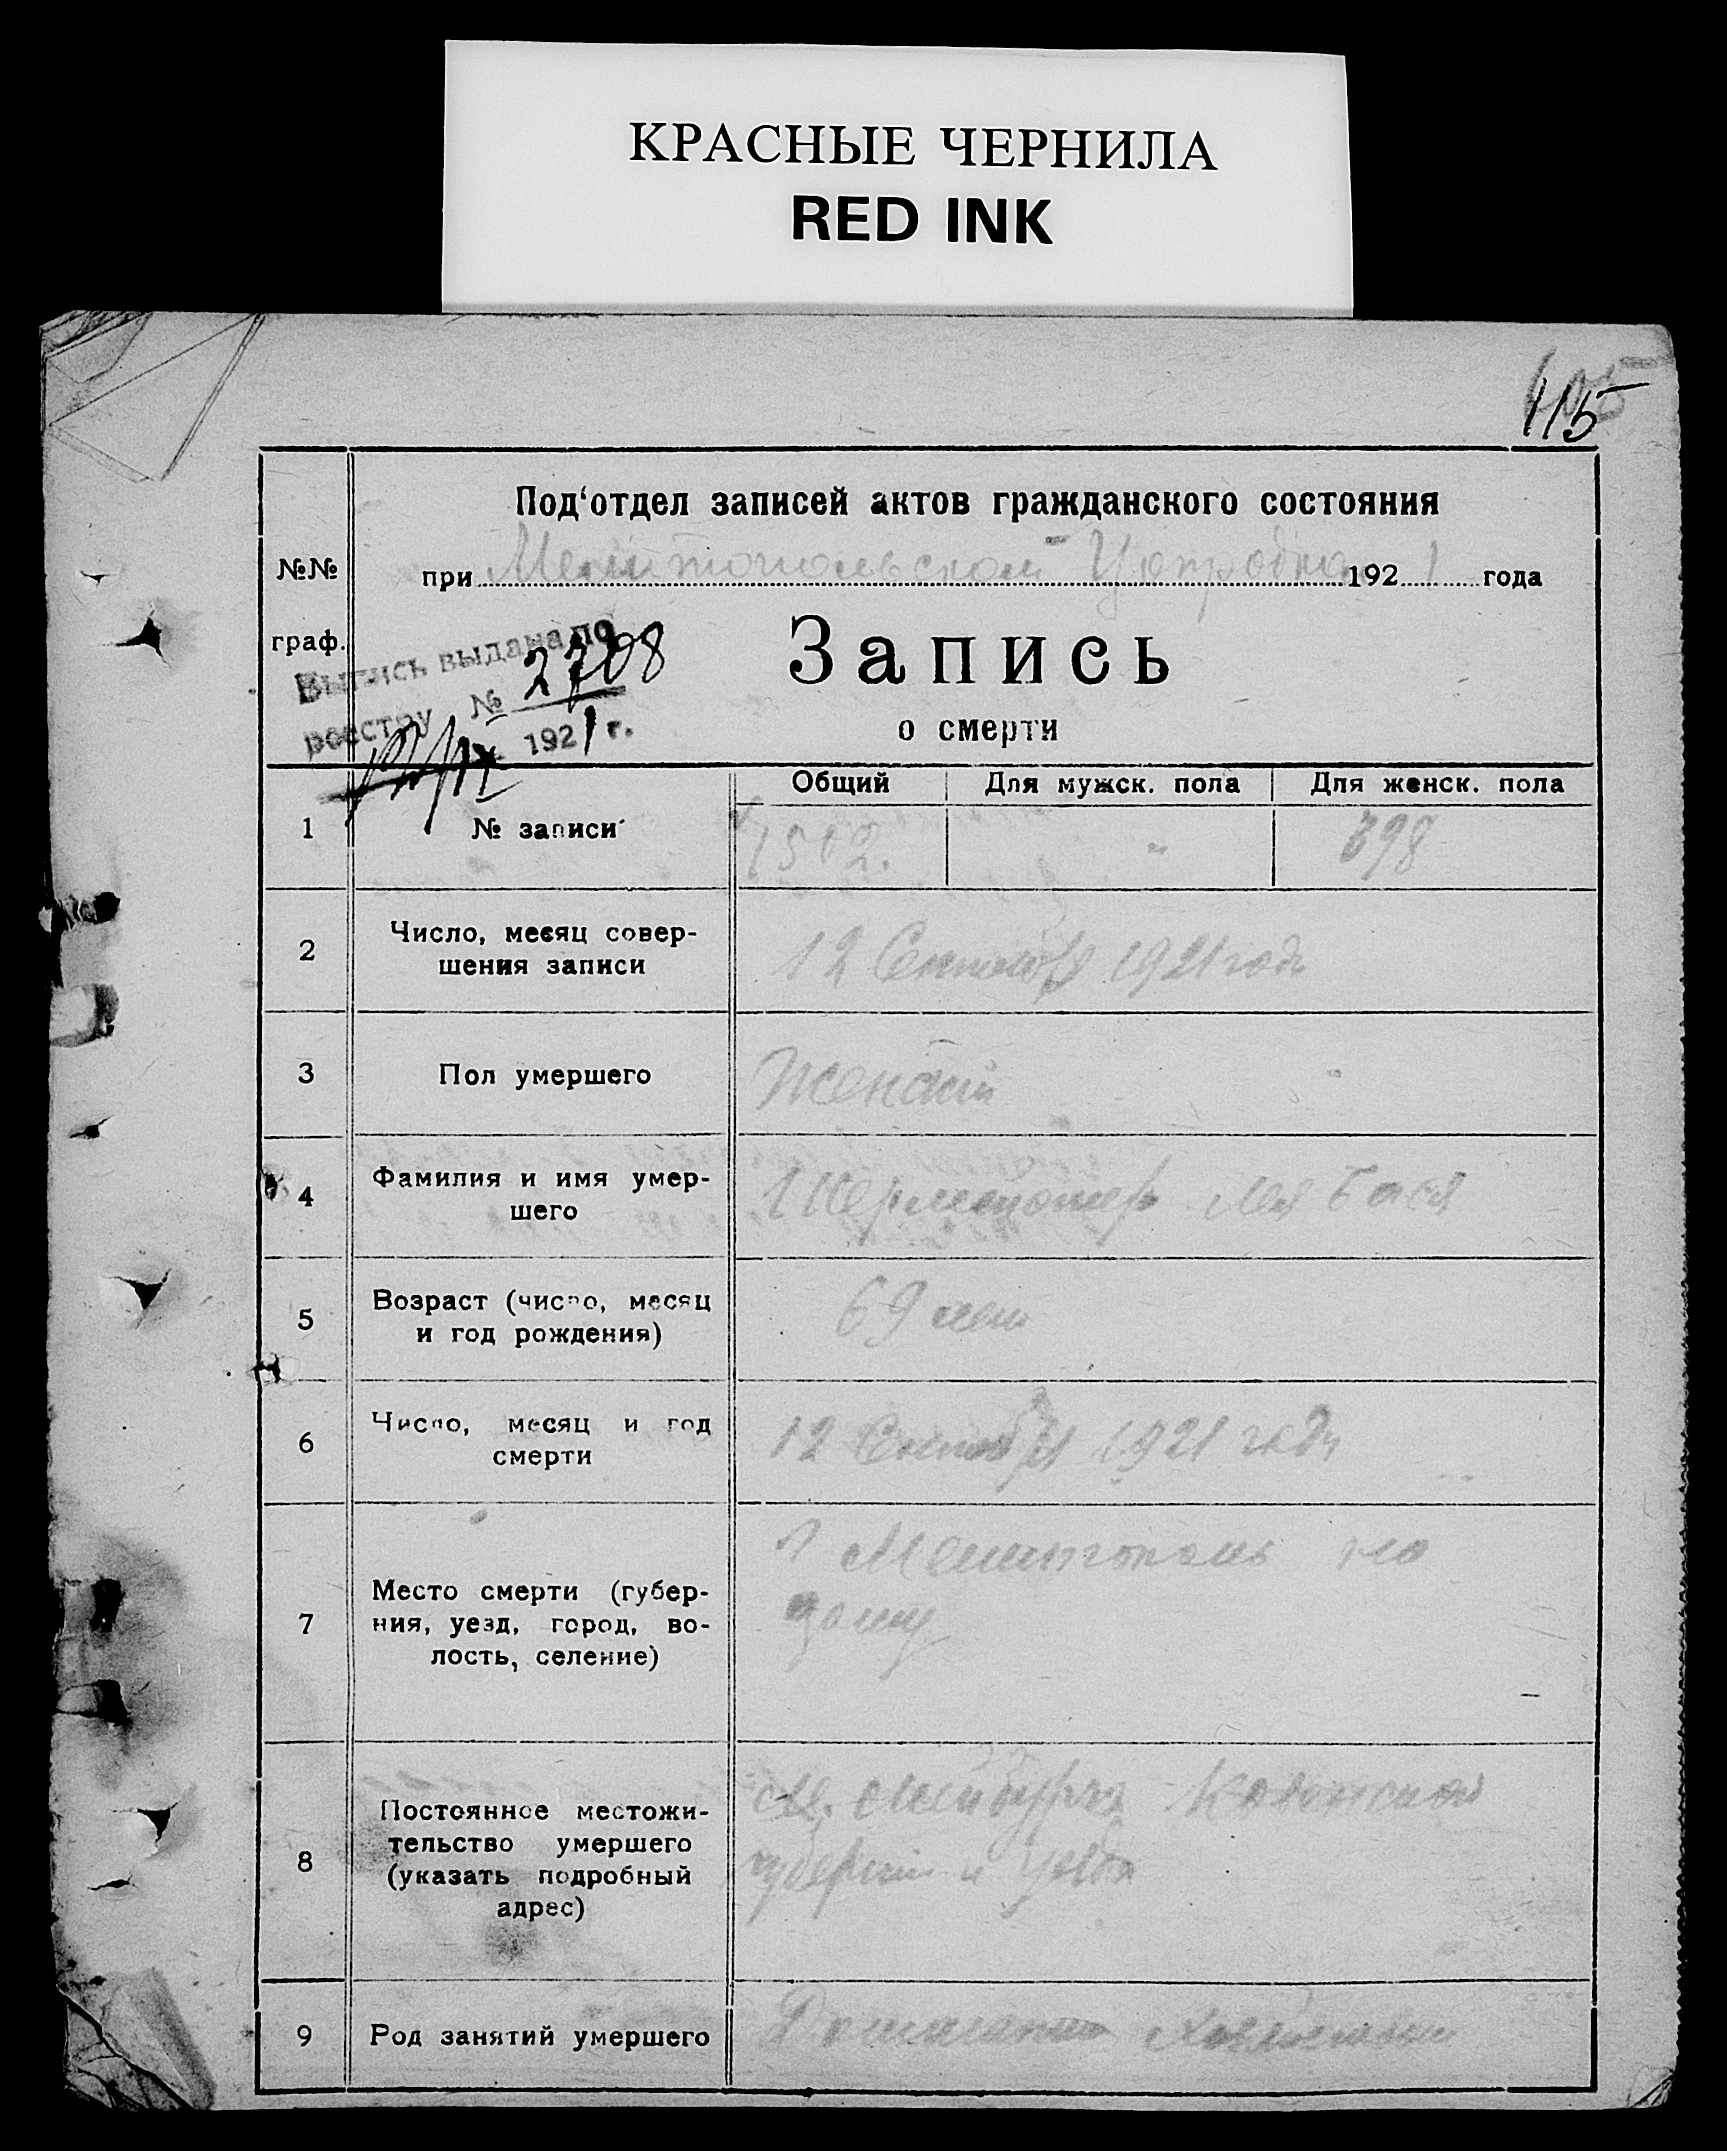 КРАСНЫЕ ЧЕРНИЛА
RED INK
115
Под‘отдел записей актов гражданского состояния
№№
при Мелитопольском 192 1 года
граф.
Выпись выдана по
реестру № 2708
1921 г.
Запись
о смерти
Общий Для мужск. пола Для женск. пола
1 № записи 1502. " 398
2 Число, месяц совер-
шения записи
12 Сентября 1921 года
3 Пол умершего Женский
4 Фамилия и имя умер-
шего
Лея Бася
5 Возраст (число, месяц
и год рождения)
69 лет
6 Число, месяц и год
смерти
12 Сентября 1921 года
7 Место смерти (губер-
ния, уезд, город, во-
лость, селение)
Мелитополь на
дому
8 Постоянное местожи-
тельство умершего
(указать подробный
адрес)
м. Ковенской
губернии и уезда
9 Род занятий умершего Домашнее